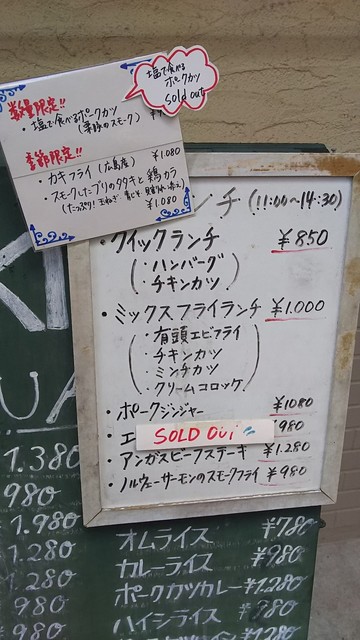 塩で食べる
ポークカツ
sold out
数量限定!!
・塩で食べるポークカツ
季節限定!!
・カキフライ(広島産) ¥1.080
・スモークしたブリのタタキと鶏カラ
¥1.080
ンチ (11:00〜14:30)
・クイックランチ ¥850
・ハンバーグ
・チキンカツ
・ミックスフライランチ ¥1.000
・有頭エビフライ
・チキンカツ
・ミンチカツ
・クリームコロッケ
・ポークジンジャー ¥1080
・エ SOLD OUT ¥980
・アンガスビーフステーキ ¥1.280
・ノルウェーサーモンのスモークフライ ¥980
UA
1.380
980
1.980 オムライス ¥780
1.280 カレーライス ¥980
1.280 ポークカツカレー ¥1.280
980 ハイシライス ¥980
980